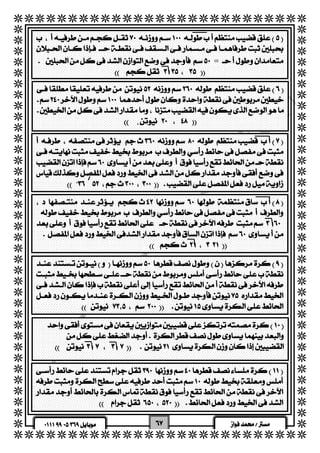 ( ٥ ) علق قضيب منتظم أ ب طوله ١٠٠ سم ووزنه ٧٠ ثقل كجم من طرفيه أ ، ب
بحبلين ثبت طرفاهما فى مسمار فى السقف فى نقطة حـ فإذا كان الحبلان
متعامدان وطول أ حـ = ٥٠ سم فأوجد فى وضع التوازن الشد فى كل من الحبلين .
(( ٣٥ ، ٣٥ √٣ ثقل كجم ))
( ٦ ) علق قضيب منتظم طوله ٢٦٠ سم ووزنه ٥٢ نيوتن من طرفيه تعليقا مطلقا فى
خيطين مربوطين فى نقطة واحدة وكان طول أحدهما ١٠٠ سم وطول الأخر ٢٤٠ سم .
ما هو الوضع الذى يكون فيه القضيب متزنا ، وما مقدار الشد فى كل من الخيطين .
(( ٤٨ ، ٢٠ نيوتن . ))
( ٧ ) أ ب قضيب منتظم طوله ٨٠ سم ووزنه ٣٦٠ ث جم يؤثر فى منتصفه ، طرفه أ
مثبت فى مفصل فى حائط رأسى والطرف ب مربوط بخيط خفيف مثبت نهايته فى
نقطة حـ من الحائط تقع رأسيا فوق أ وعلى بعد من أ يساوى ٦٠ سم فإذا اتزن القضيب
فى وضع أفقى فأوجد مقدار كل من الشد فى الخيط ورد فعل المفصل وكذلك قياس
زاوية ميل رد فعل المفصل على القضيب . (( ٣٠٠ ، ٣٠٠ ث جم ، ٥٢ ٣٦ ))
( ٨ ) أ ب ساق منتظمة طولها ٦٠ سم ووزنها ٤٢ ث كجم يؤثر عند منتصفها د ،
والطرف أ مثبت فى مفصل فى حائط رأسى والطرف ب مربوط بخيط خفيف طوله
٦٠ √٣ سم مثبت طرفه الآخر فى نقطة حـ على الحائط تقع رأسيا فوق أ وعلى بعد
من أ يساوى ٦٠ سم فإذا اتزن الساق فأوجد مقدار الشد فى الخيط ورد فعل المفصل .
(( ٢١ √٣ ، ٢١ ث كجم ))
( ٩ ) كرة مركزها ( ن ) وطول نصف قطرها ٥٠ سم ووزنها ( و ) نيوتن تستند عند
نقطة ب على حائط رأسى أملس ومربوط من نقطة حـ على سطحها بخيط مثبت
طرفه الآخر فى نقطة أ من الحائط تقع رأسيا إلى أعلى نقطة ب فإذا كان الشد فى
الخيط مقداره ٧٥ نيوتن فأوجد طول الخيط ووزن الكرة عندما يكون رد فعل
الحائط على الكرة يساوى ١٥ نيوتن . (( ٢٠٠ سم ، ٧٣,٥ نيوتن ))
( ١٠ ) كرة مصمته ترتكز على قضيبين متوازيين يقعان فى مستوى أفقى واحد
والبعد بينهما يساوى طول نصف قطر الكرة . أوجد الضغط على كل من
القضيبين إذا كان وزن الكرة يساوى ٢١ نيوتن . (( ٧ √٣ ، ٧ √٣ نيوتن ))
( ١١ ) كرة ملساء نصف قطرها ٤٠ سم ووزنها ٣٩٠ ثقل جرام تستند على حائط رأسى
أملس ومعلقة بخيط طوله ١٠ سم مثبت أحد طرفيه على سطح الكرة ومثبت طرفه
الآخر فى نقطة من الحائط تقع رأسيا فوق نقطة تماس الكرة بالحائط أوجد مقدار
الشد فى الخيط ورد فعل الحائط . (( ٥٢٠ ، ٦٥٠ ثقل جرام ))
مستر / محمد فواز ٦٧ موبايل ٣٦٩ ٠٥ ٩٩ ٠١١١